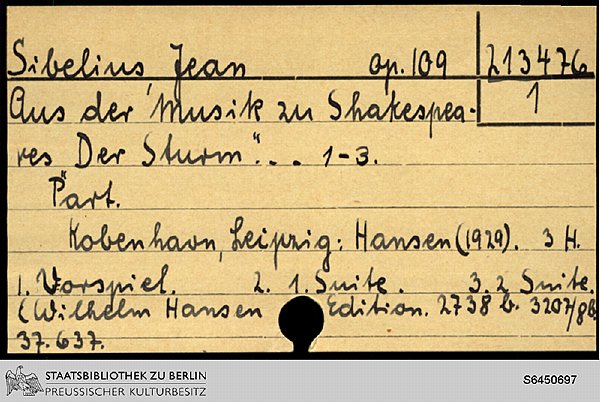 Sibelius, Jean op. 109 213476
1
Aus der "Musik zu Shakespea-
res Der Sturm"... 1-3.
Part.
Kobenhavn, Leipzig: Hansen (1929). 3 H.
1. Vorspiel. 2. 1. Suite. 3. 2 Suite.
(Wilhelm Hansen Edition. 2738 b. 3207/8b
37.637.
STAATSBIBLIOTHEK ZU BERLIN
PREUSSISCHER KULTURBESITZ
S6450697